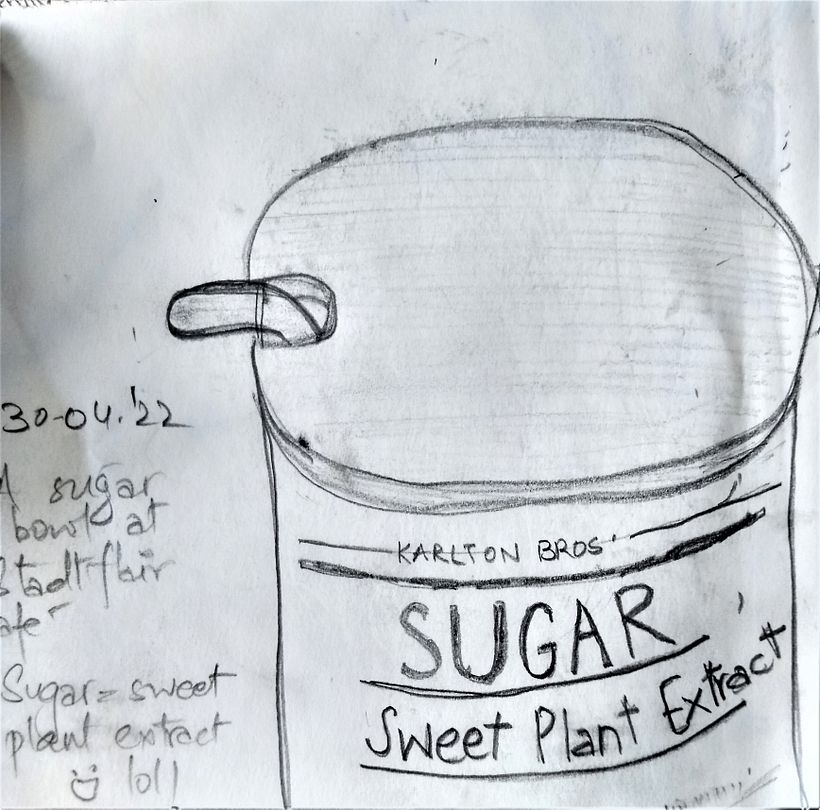 30-04.'22
A sugar
bowl at
Stadtflair
afe
Sugar = sweet
plant extract
lol
KARLTON BROS'
SUGAR
Sweet Plant Extract